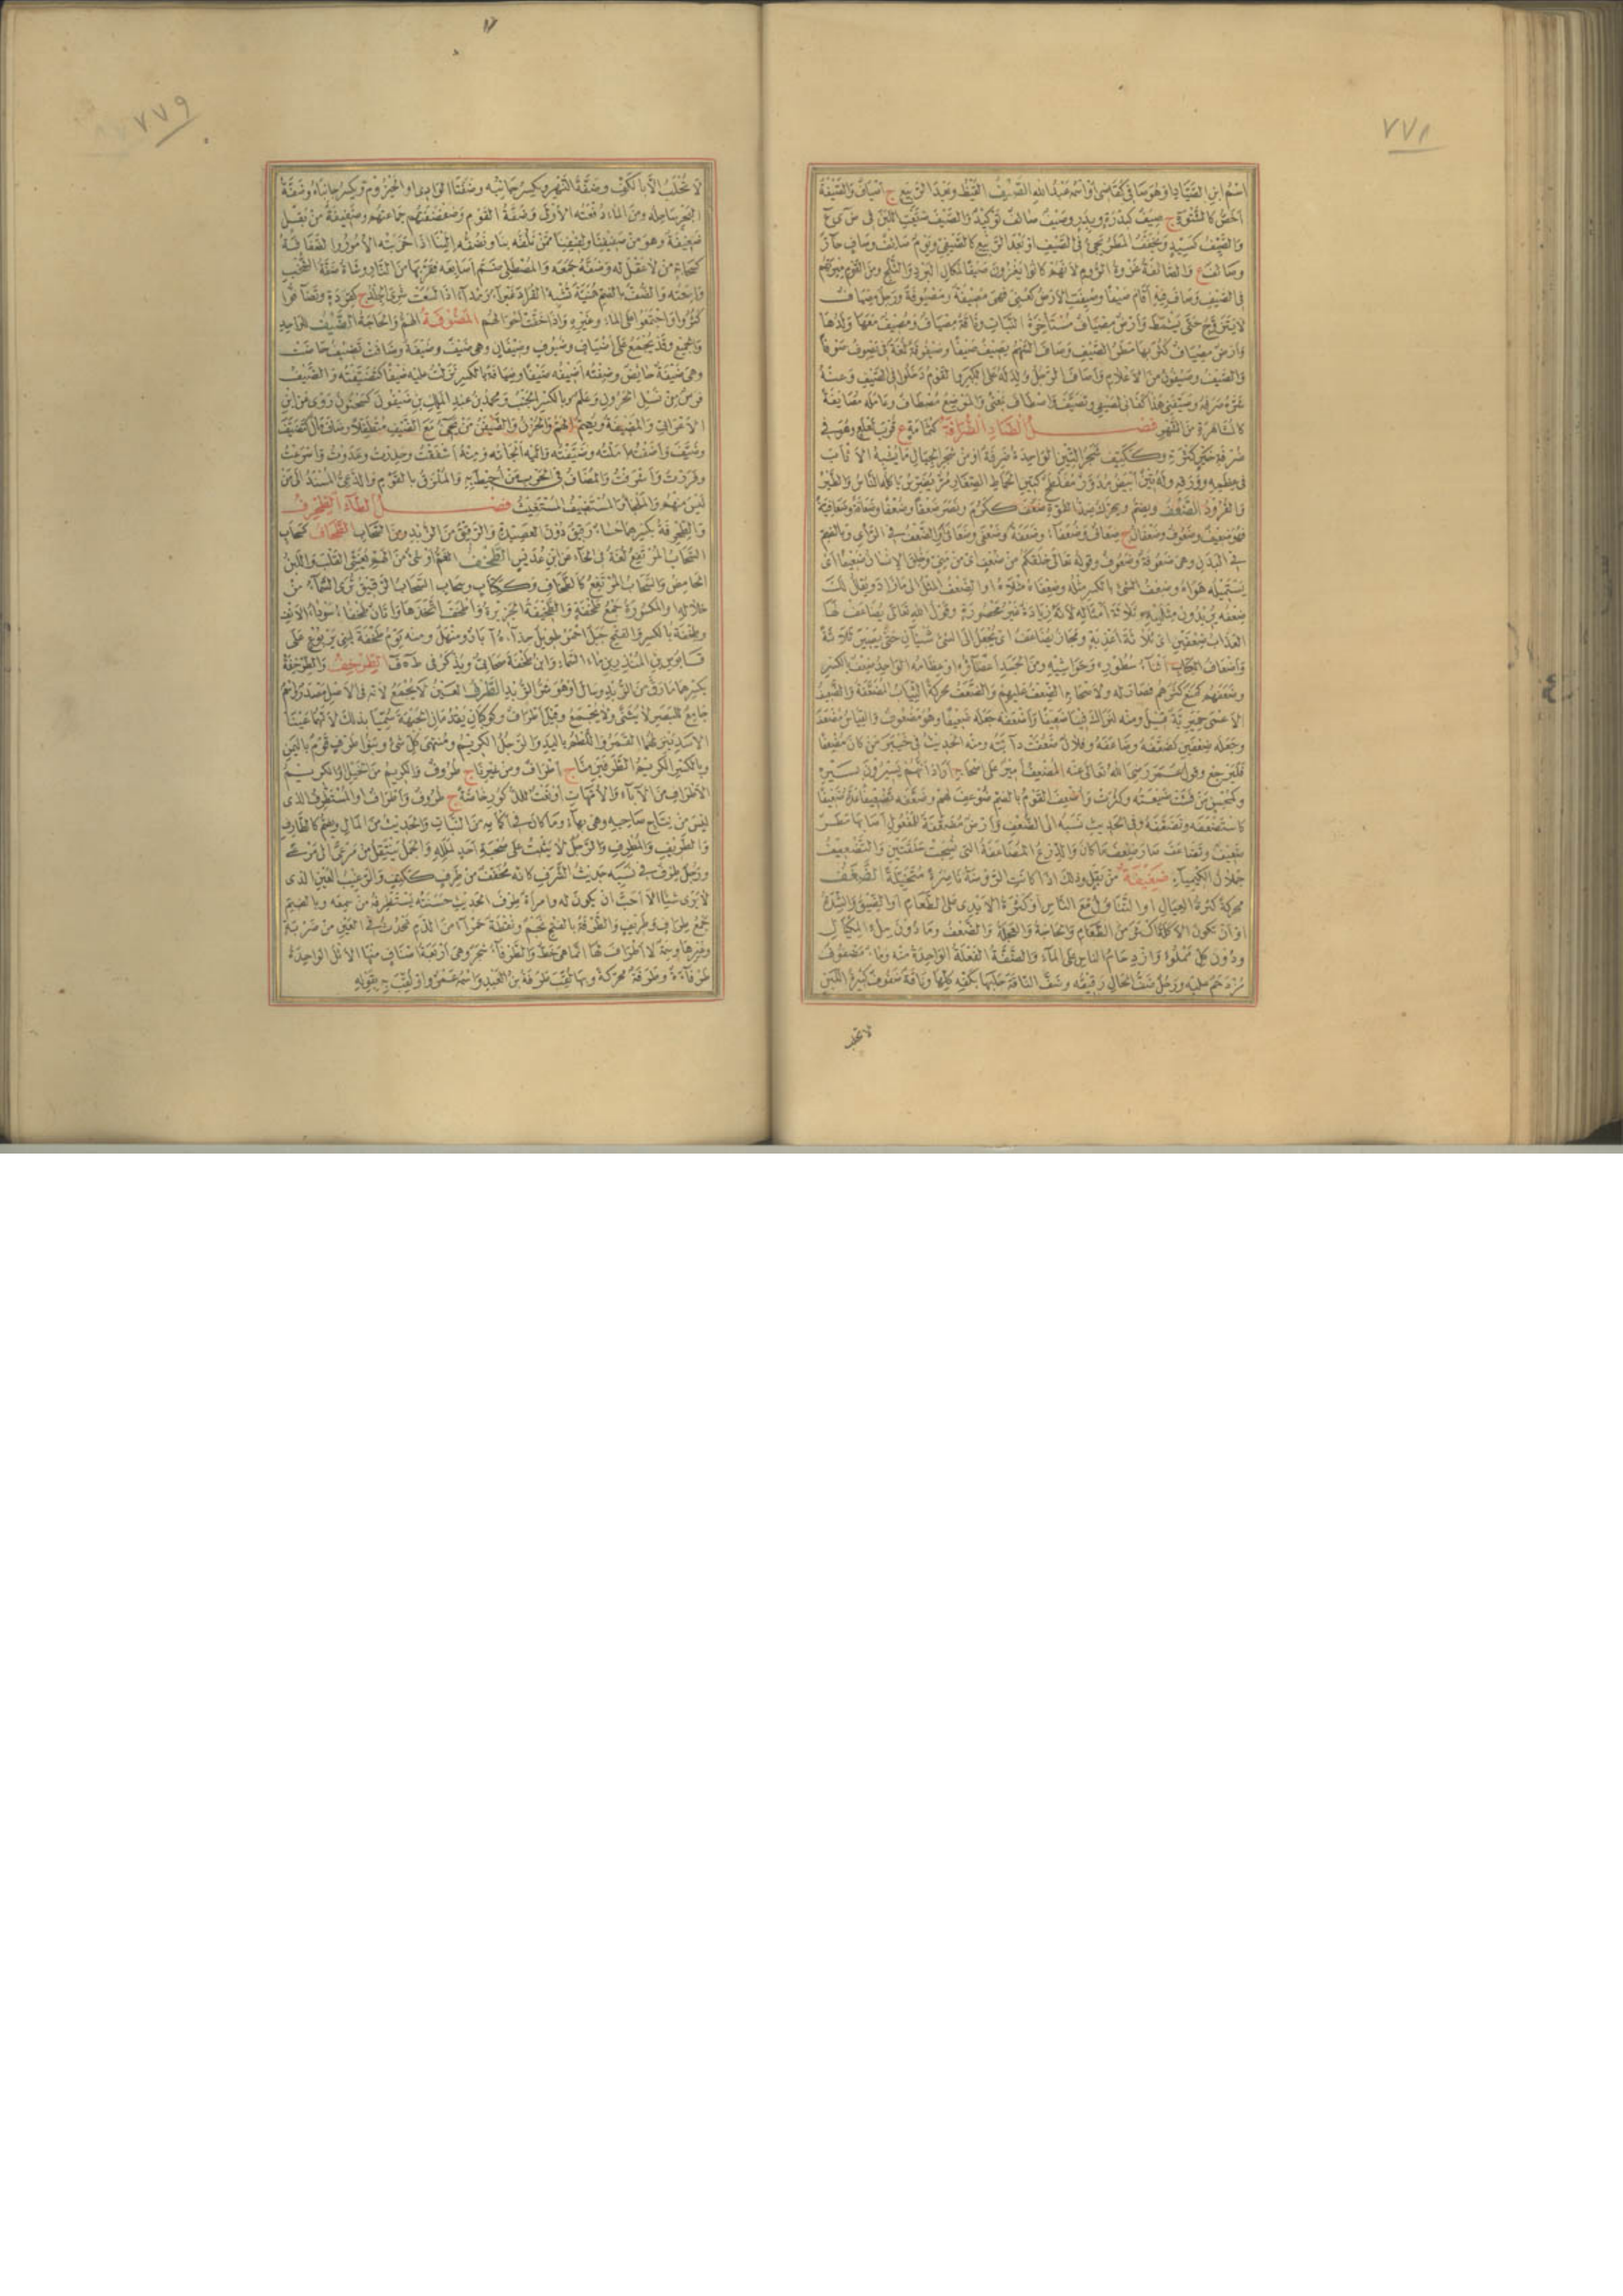 ٧٧٨
اسم ابن الصياد او هو صافي كقاضي او اسمه عبد الله الصيف القيظ او بعد الربيع ج اصياف والصيفة
اخص كالشتوة ج صيف كبدرة وبدر وصيف صائف توكيد والصيف ضيعت اللبن في ض ي ع
والصيف كسيد ويخفف المطر يجئ في الصيف او بعد الربيع كالصيفي ويوم صائف وصاف حار
وصائف ع والصائفة غزوة الروم لانهم كانوا يغزون صيفا لمكان البرد والثلج ومن القوم ميرتهم
في الصيف وصاف به اقام صيفا وصيفت الارض كعني فهي مصيفة ومصيوفة ورجل مصياف
لا يتزوج حتى يشمط وارض مصياف مستاخرة النبات وناقة مصياف ومصيف معها ولدها
وارض مصياف كثر بها مطر الصيف وصاف السهم يصيف صيفا وصيفوفة لغة في يصوف صوفا
والصيف وصيفون من الاعلام واصاف الرجل ولد له على الكبر والقوم دخلوا في الصيف وعنه
شره صرفه وصيفني هذا كفاني لصيفي وتصيف واصطاف بمعنى والموضع مصطاف وعامله مصايفة
كالمشاهرة من الشهر فصل الضاد الضرافة كثمامة ع قرب لعلع وهو في
ضرفة خير كثرة وككتف شجر التين الواحدة ضرفة او من شجر الجبال ما يشبه الاثاب
في عظمه وورقه وله تين ابيض مدور مفلطح كتين الحماط الصغار مر يضرس ياكله الناس والطير
والقرود الضعف ويضم ويحرك ضد القوة ضعف ككرم ونصر ضعفا وضعفا وضعافة وضعافية
فهو ضعيف وضعوف وضعفان ج ضعاف وضعفاء وضعفة وضعفى وضعافى او الضعف في الراي وبالضم
في البدن وهي ضعيفة وضعوف وقوله تعالى خلقكم من ضعف اي من مني وخلق الانسان ضعيفا اي
يستميله هواه وضعف الشئ بالكسر مثله وضعفاه مثلاه او الضعف المثل الى ما زاد ويقال لك
ضعفه يريدون مثليه وثلاثة امثاله لانه زيادة غير محصورة وقول الله تعالى يضاعف لها
العذاب ضعفين اي ثلاثة اعذبة ومجاز يضاعف اي يجعل الى الشئ شيئان حتى يصير ثلاثة
واضعاف الكتاب اثناء سطوره وحواشيه ومن الجسد اعضاؤه او عظامه الواحد ضعف بالكسر
وضعفهم كمنع كثرهم فصار له ولاصحابه الضعف عليهم والضعف محركة الثياب المضعفة والضعيف
الاعمى حميرية قيل ومنه لنراك فينا ضعيفا واضعفه جعله ضعيفا وهو مضعوف والشئ ضعفه
وجعله ضعفين كضعفه وضاعفه وفلان ضعفت دابته ومنه الحديث في خيبر من كان مضعفا
فليرجع وقول عمر رضي الله تعالى عنه المضعف امير على اصحابه اراد انهم يسيرون بسيره
وكمحسن من فشت ضيعته وكثرت واضعف القوم بالضم ضوعف لهم وضعفه تضعيفا عده ضعيفا
كاستضعفه وتضعفه وفي الحديث نسبه الى الضعف وارض مضعفة للمفعول اصابها مطر
ضعيف وتضاعف صار ضعف ما كان والدرع المضاعفة التي نسجت حلقتين والتضعيف
حملان الكيمياء ضفيفة من بقل وذلك اذا كانت الروضة ناضرة متخيلة الضفف
محركة كثرة العيال او التناول مع الناس او كثرة الايدي على الطعام او الضيق والشدة
او ان تكون الاكلة اكثر من الطعام والحاجة والعجلة والضعف وما دون ملء المكيال
ودون كل مملوء وازدحام الناس على الماء والضفة الفعلة الواحدة منه وماء مضفوف
مزدحم عليه ورجل ضف الحال رقيقه وضف الناقة حلبها بكفه كلها وناقة ضفوف كثيرة اللبن
لا تحلب
٧٧٩
لا تحلب الا بالكف وضفة النهر ويكسر جانبه وضفتا الوادي او الحيزوم ويكسر جانباه وضفة
البحر ساحله ومن الماء دفعته الاولى وضفة القوم وضفضفتهم جماعتهم وضفيفة من بقل
ضغيغة وهو من ضفيفنا ولفيفنا ممن نلفه بنا ونضفه الينا اذا حزبتنا الامور والضفافة
كسحابة من لا عقل له وضفه جمعه والمصطلي ضم اصابعه فقربها من النار وشاة ضفة الشخب
واسعته والضف بالضم هنية تشبه القراد غبراء رمداء اذا لسعت شري الجلد ج كقردة وتضافوا
كثروا واجتمعوا على الماء وغيره واذا خفت احوالهم المضوفة الهم والحاجة الضيف للواحد
والجميع وقد يجمع على اضياف وضيوف وضيفان وهي ضيف وضيفة وضافت تضيف حاضت
وهي ضيفة حائض وضفته اضيفه ضيفا وضيافة بالكسر نزلت عليه ضيفا كتضيفته والضيف
فرس من نسل الحرون وعلم وبالكسر الجنب ومحمد بن عبد الملك بن ضيفون كسحنون روى عن ابن
الاعرابي والمضيفة ويضم الهم والحزن والضيفن من يجئ مع الضيف متطفلا وضاف مال كتضيف
وضيف واضفته املته وضيفته والجاته ومنه اشفقت وحذرت وعدوت واسرعت
وفررت واشرفت والمضاف في الحرب من احيط به والملزق بالقوم والدعي المسند الى من
ليس منهم والملجأ والمستضيف المستغيث فصل الطاء الطخرف
والطخرفة بكسرهما حساء رقيق دون العصيدة والرقيق من الزبد ومن السحاب الطخاف كسحاب
السحاب المرتفع لغة في الخاء عن ابن عديس الطخف الغم او شئ من الهم يغشى القلب واللبن
الحامض والسحاب المرتفع كالطخاف وككتاب وسحاب السحاب الرقيق ترى السماء من
خلاله او المكسورة جمع طخفة والطخيفة الخزيرة واطخف اتخذها واتان طخفاء سوداء الانف
وطخفة بالكسر والفتح جبل احمر طويل حذاءه ابار ومنهل ومنه يوم طخفة لبني يربوع على
قابوس بن المنذر بن ماء السماء وابن طخفة صحابي ويذكر في ط ه ف الطرخف والطرخفة
بكسرهما ما رق من الزبد وسال او هو شر الزبد الطرف العين لا يجمع لانه في الاصل مصدر او اسم
جامع للبصر لا يثنى ولا يجمع وقيل اطراف وكوكبان يقدمان الجبهة سميا بذلك لانهما عينا
الاسد ينزلهما القمر واللطم باليد والرجل الكريم ومنتهى كل شئ وبنو طرف قوم باليمن
وبالكسر الكريم الطرفين منا ج اطراف ومن غيرنا ج طروف والكريم من الخيل او الكريم
الاطراف من الآباء والامهات او نعت للذكور خاصة ج طروف واطراف او المستطرف الذي
ليس من نتاج صاحبه وهي بهاء وما كان في اكمامه من النبات والحديث من المال ويضم كالطارف
والطريف والمطرف والرجل لا يثبت على صحبة احد لملله والجمل ينتقل من مرعى الى مرعى
ورجل طرف في نسبه حديث الشرف كانه مخفف من طرف ككتف والرغيب العين الذي
لا يرى شيئا الا احب ان يكون له وامراة طرف الحديث حسنته يستطرفه من سمعه وبالضم
جمع طراف وطريف والطرفة بالفتح نجم ونقطة حمراء من الدم تحدث في العين من ضربة
وغيرها وسمة لا اطراف لها انما هي خط والطرفاء شجر وهي اربعة اصناف منها الاثل الواحدة
طرفاءة وطرفة محركة وبها لقب طرفة بن العبد واسمه عمرو او لقب بقوله